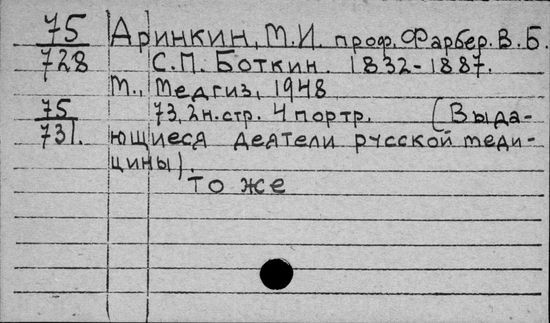 75 Аринкин, М.И. проф. Фарбер. В.Б.
728 С.П. Боткин. 1832-1887.
М., Медгиз, 1948
75 73, 2н.стр. 4 портр. (Выда-
731. ющиеся деятели русской меди-
цины).
то же